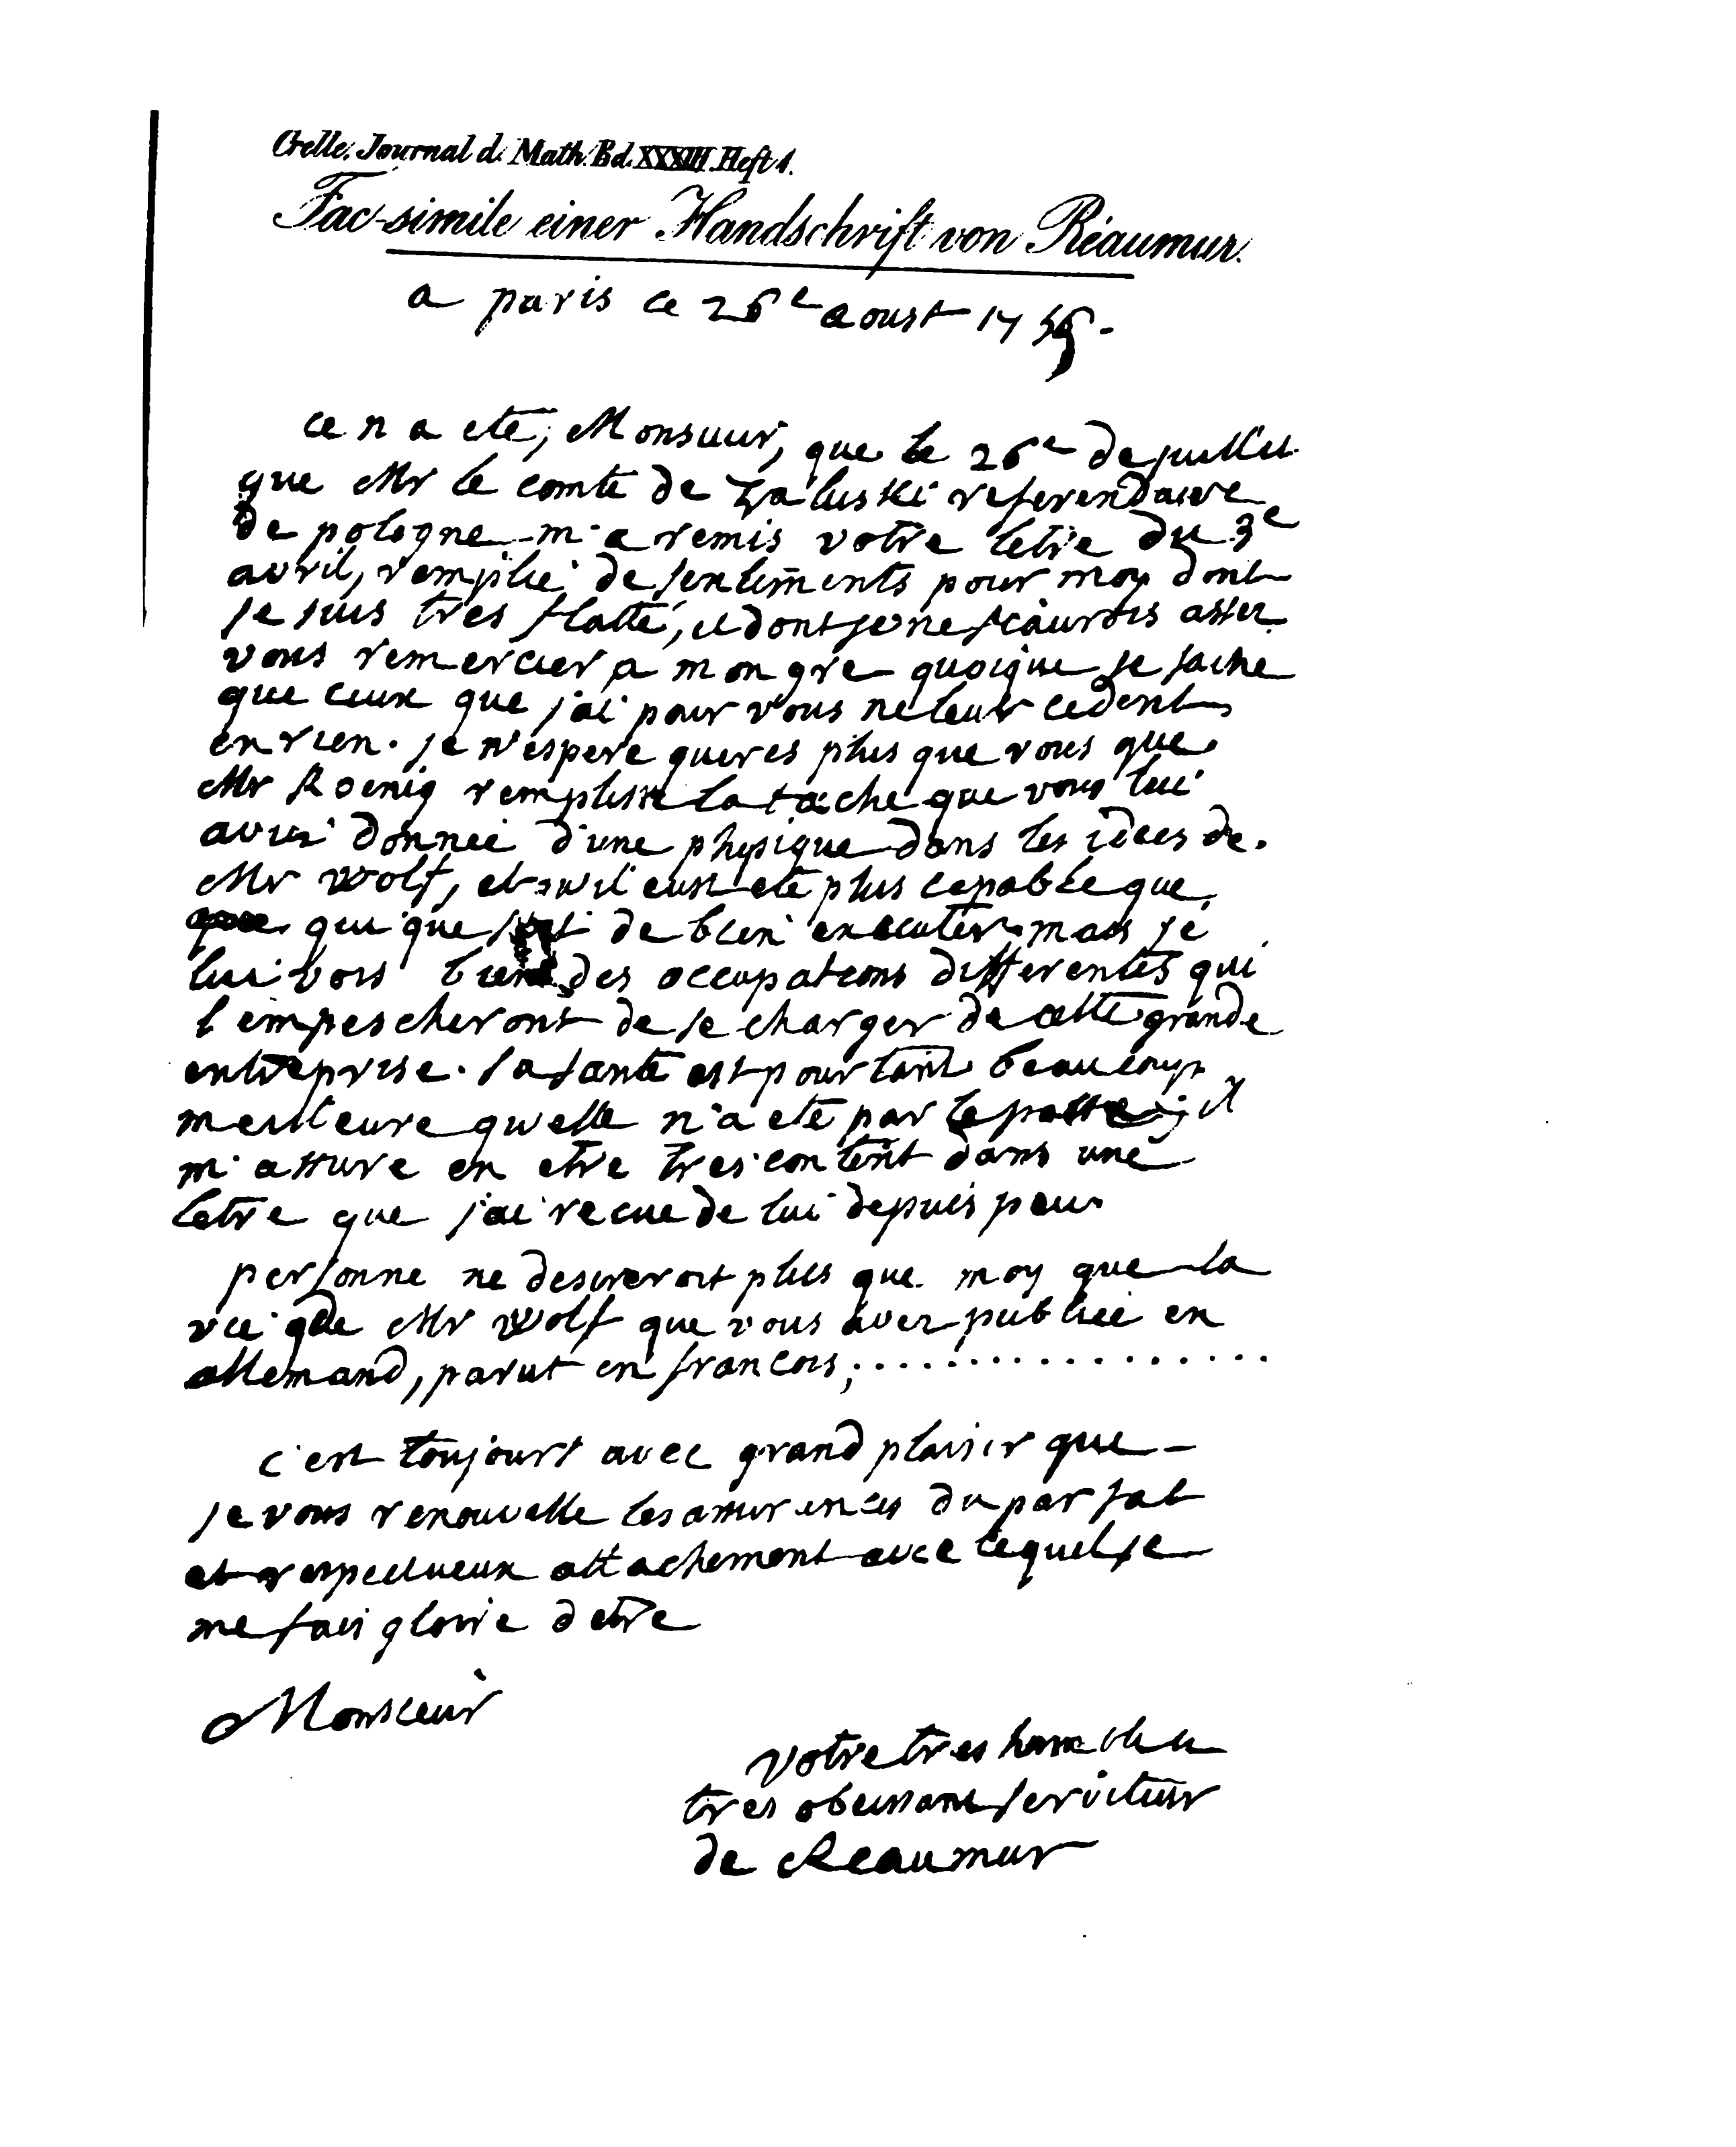 Crelle. Journal d. Math. Bd. XXXIII. Heft 1.
Fac-simile einer Handschrift von Réaumur.
a paris ce 26e aoust 17
ce n a eté, Monsieur, que le 26e de juillet
que Mr le comte de Zaluski referendaire
de pologne m'a remis votre letre du 3e
avril, remplie de sentiments pour moy dont
je suis tres flatté, et dont je ne scaurois assez
vous remercier a mon gre quoique je sache
que ceux que j'ai pour vous ne leur cedent
en rien. je n'espere gueres plus que vous que
Mr Koenig remplisse la tache que vous lui
aviez donnée d'une physique dans les idées de
Mr Wolf, et qu'il eust eté plus capable que
qui que soit de bien executer. mais je
lui vois bien des occupations differentes qui
l'empescheront de se charger de cette grande
entreprise. sa santé est pourtant beaucoup
meilleure qu'elle n'a eté par le passé; il
m'assure en etre tres content dans une
letre que j'ai recue de lui depuis peu.
personne ne desireroit plus que moy que la
vie de Mr Wolf que vous avez publiée en
allemand, parut en francois; . . . . . . . . . . . . . . . . .
c'est toujours avec grand plaisir que
je vous renouvelle les assurences du parfait
et respectueux attachement avec lequel je
me fais gloire d etre
Monsieur
votre tres humble et
tres obeissant serviteur
de Reaumur